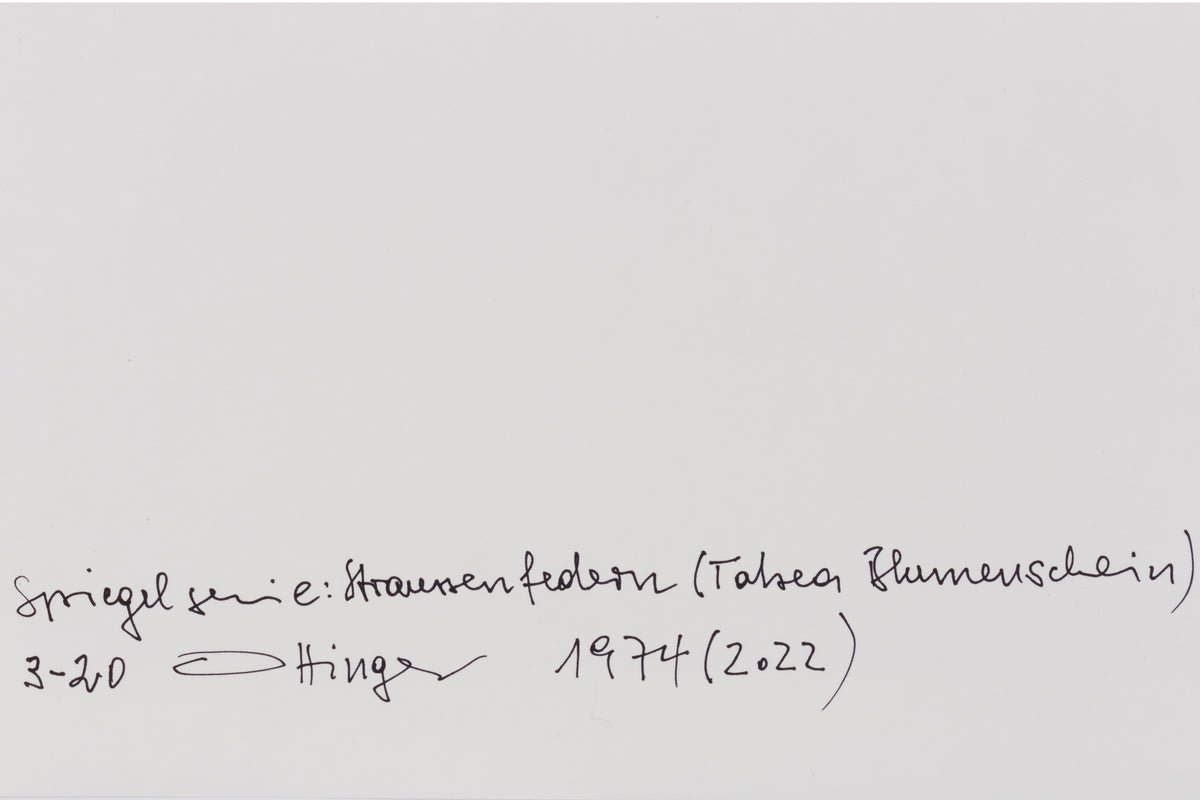 Spiegelserie: Straussenfedern (Tabea Blumenschein)
3-20 Ottinger 1974 (2022)